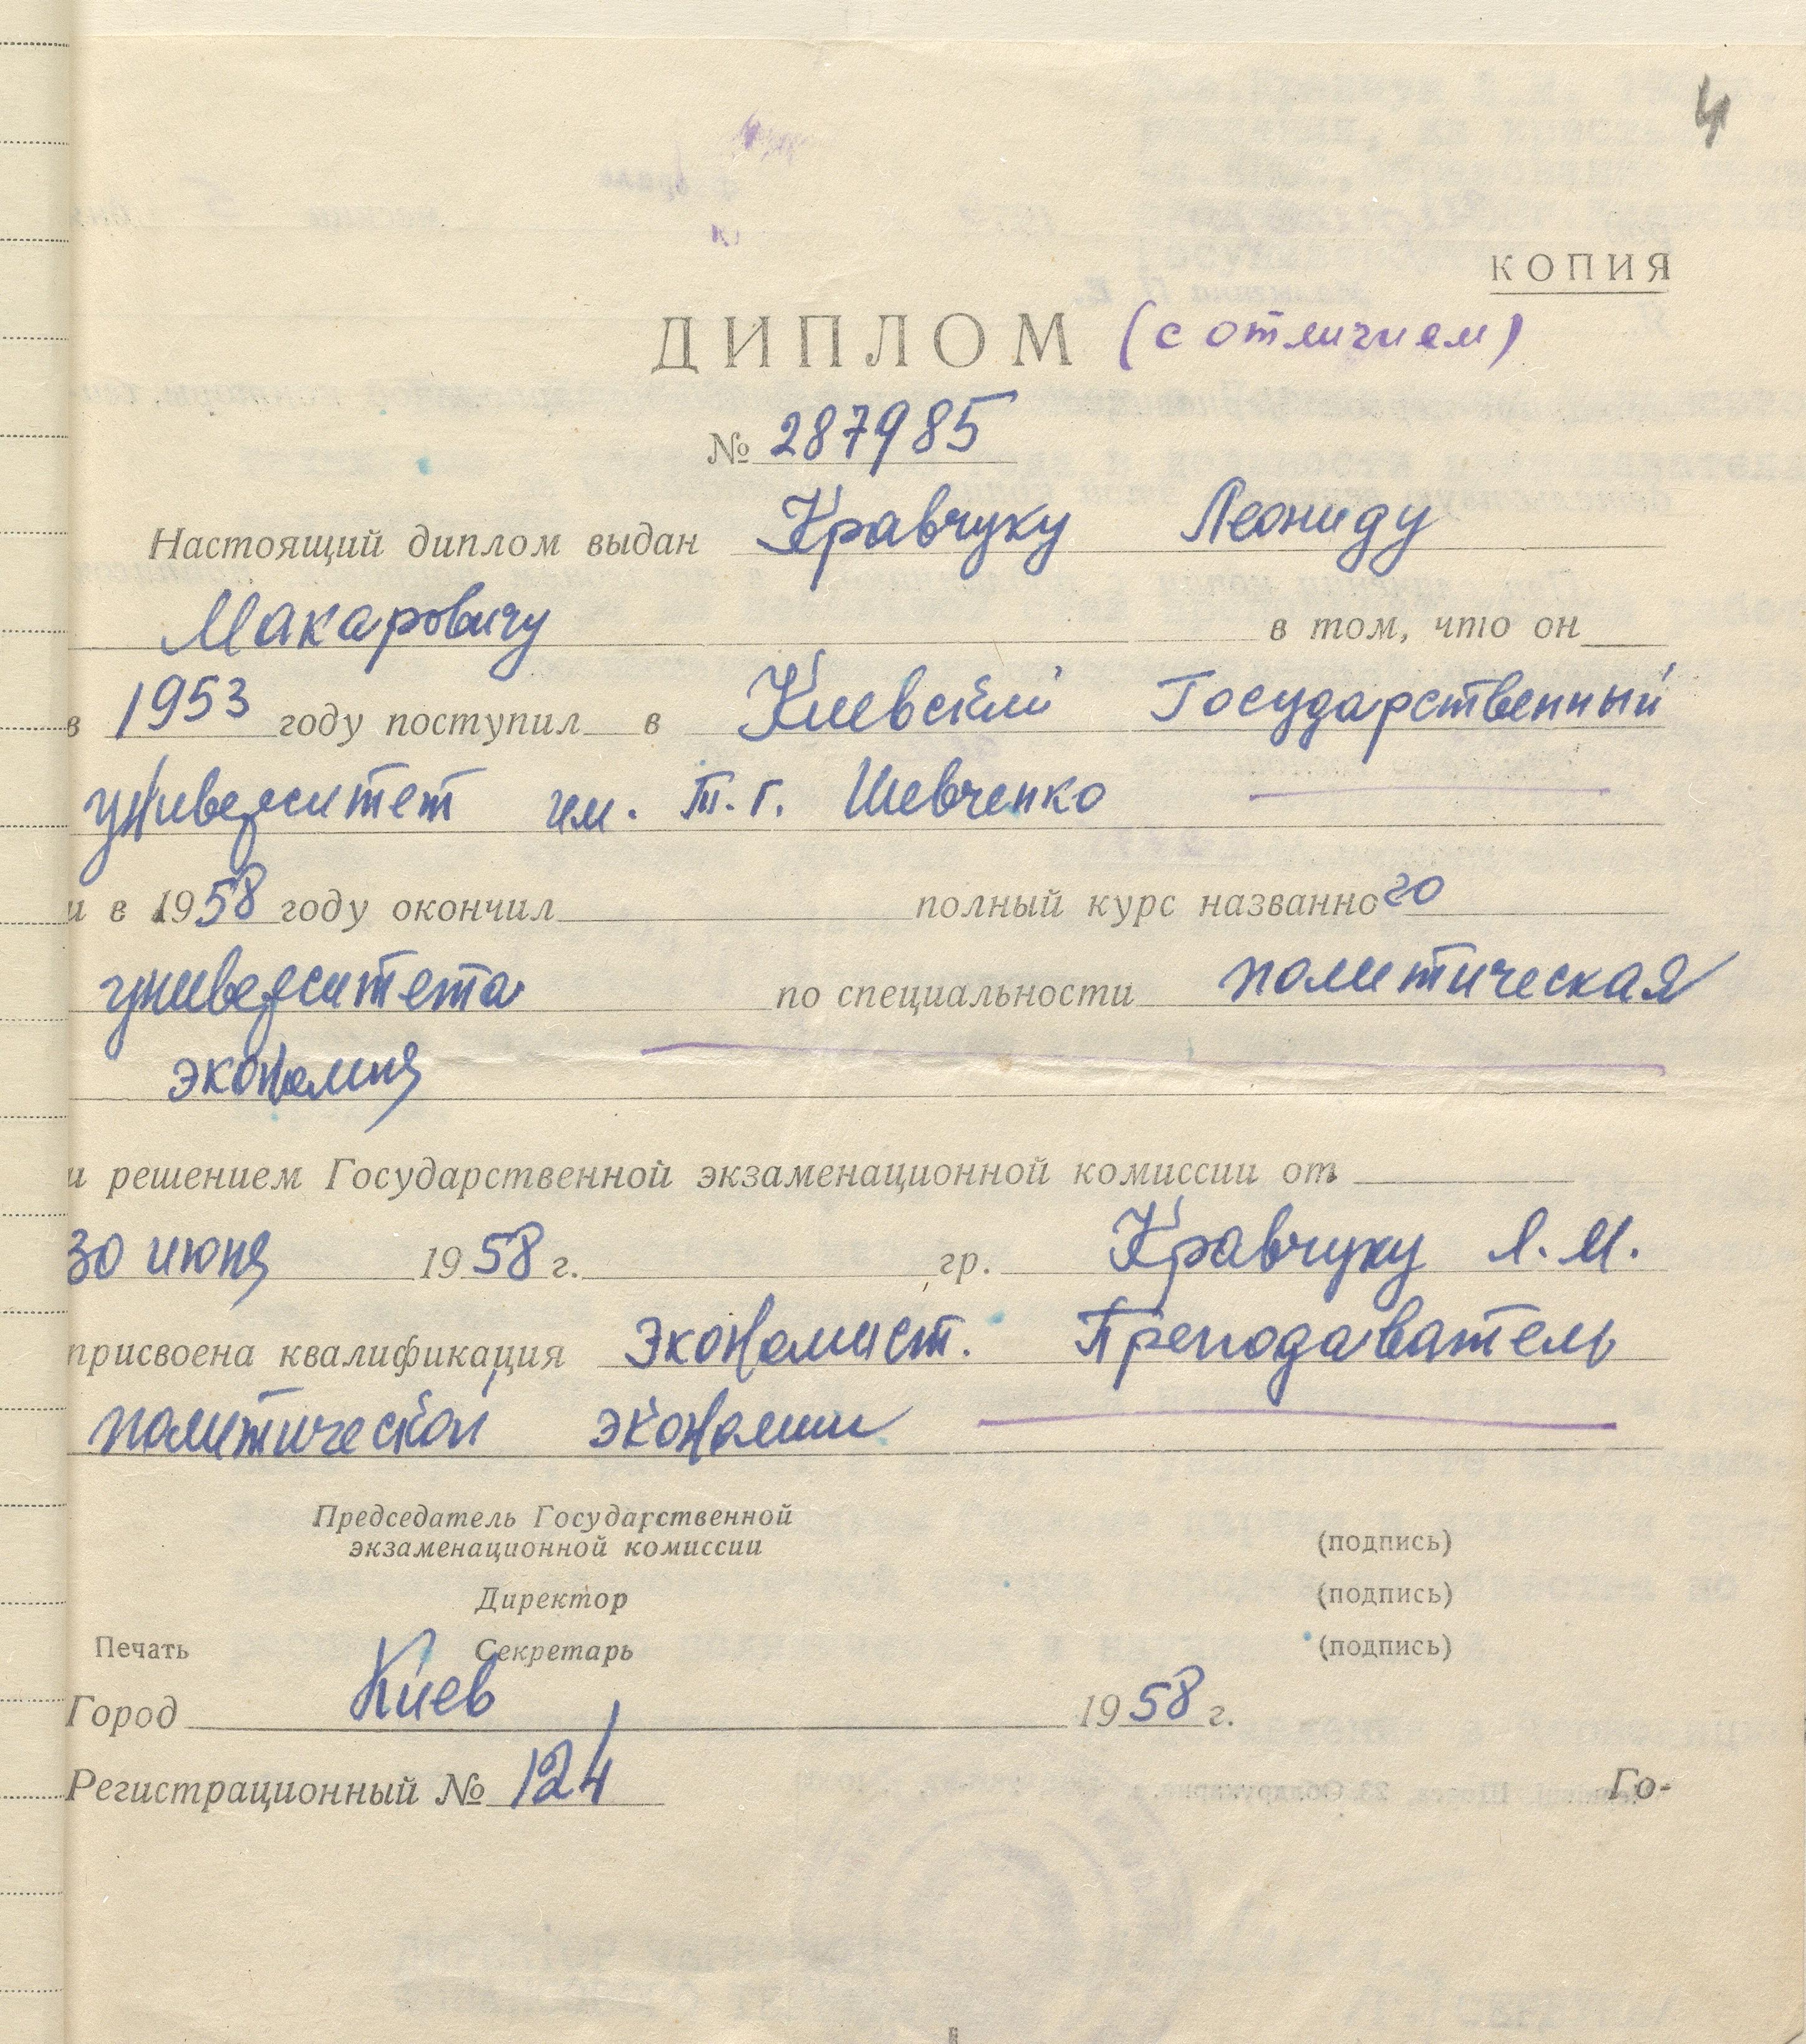 4
КОПИЯ
ДИПЛОМ (с отличием)
№ 287985
Настоящий диплом выдан Кравчуку Леониду
Макаровичу в том, что он
в 1953 году поступил в Киевский Государственный
университет им. Т. Г. Шевченко
и в 1958 году окончил полный курс названного
университета по специальности политическая
экономия
и решением Государственной экзаменационной комиссии от
30 июня 1958 г. гр. Кравчуку Л. М.
присвоена квалификация Экономист. Преподаватель
политической экономии
Председатель Государственной
экзаменационной комиссии (подпись)
Директор (подпись)
Печать Секретарь (подпись)
Город Киев 1958 г.
Регистрационный № 124 Го-